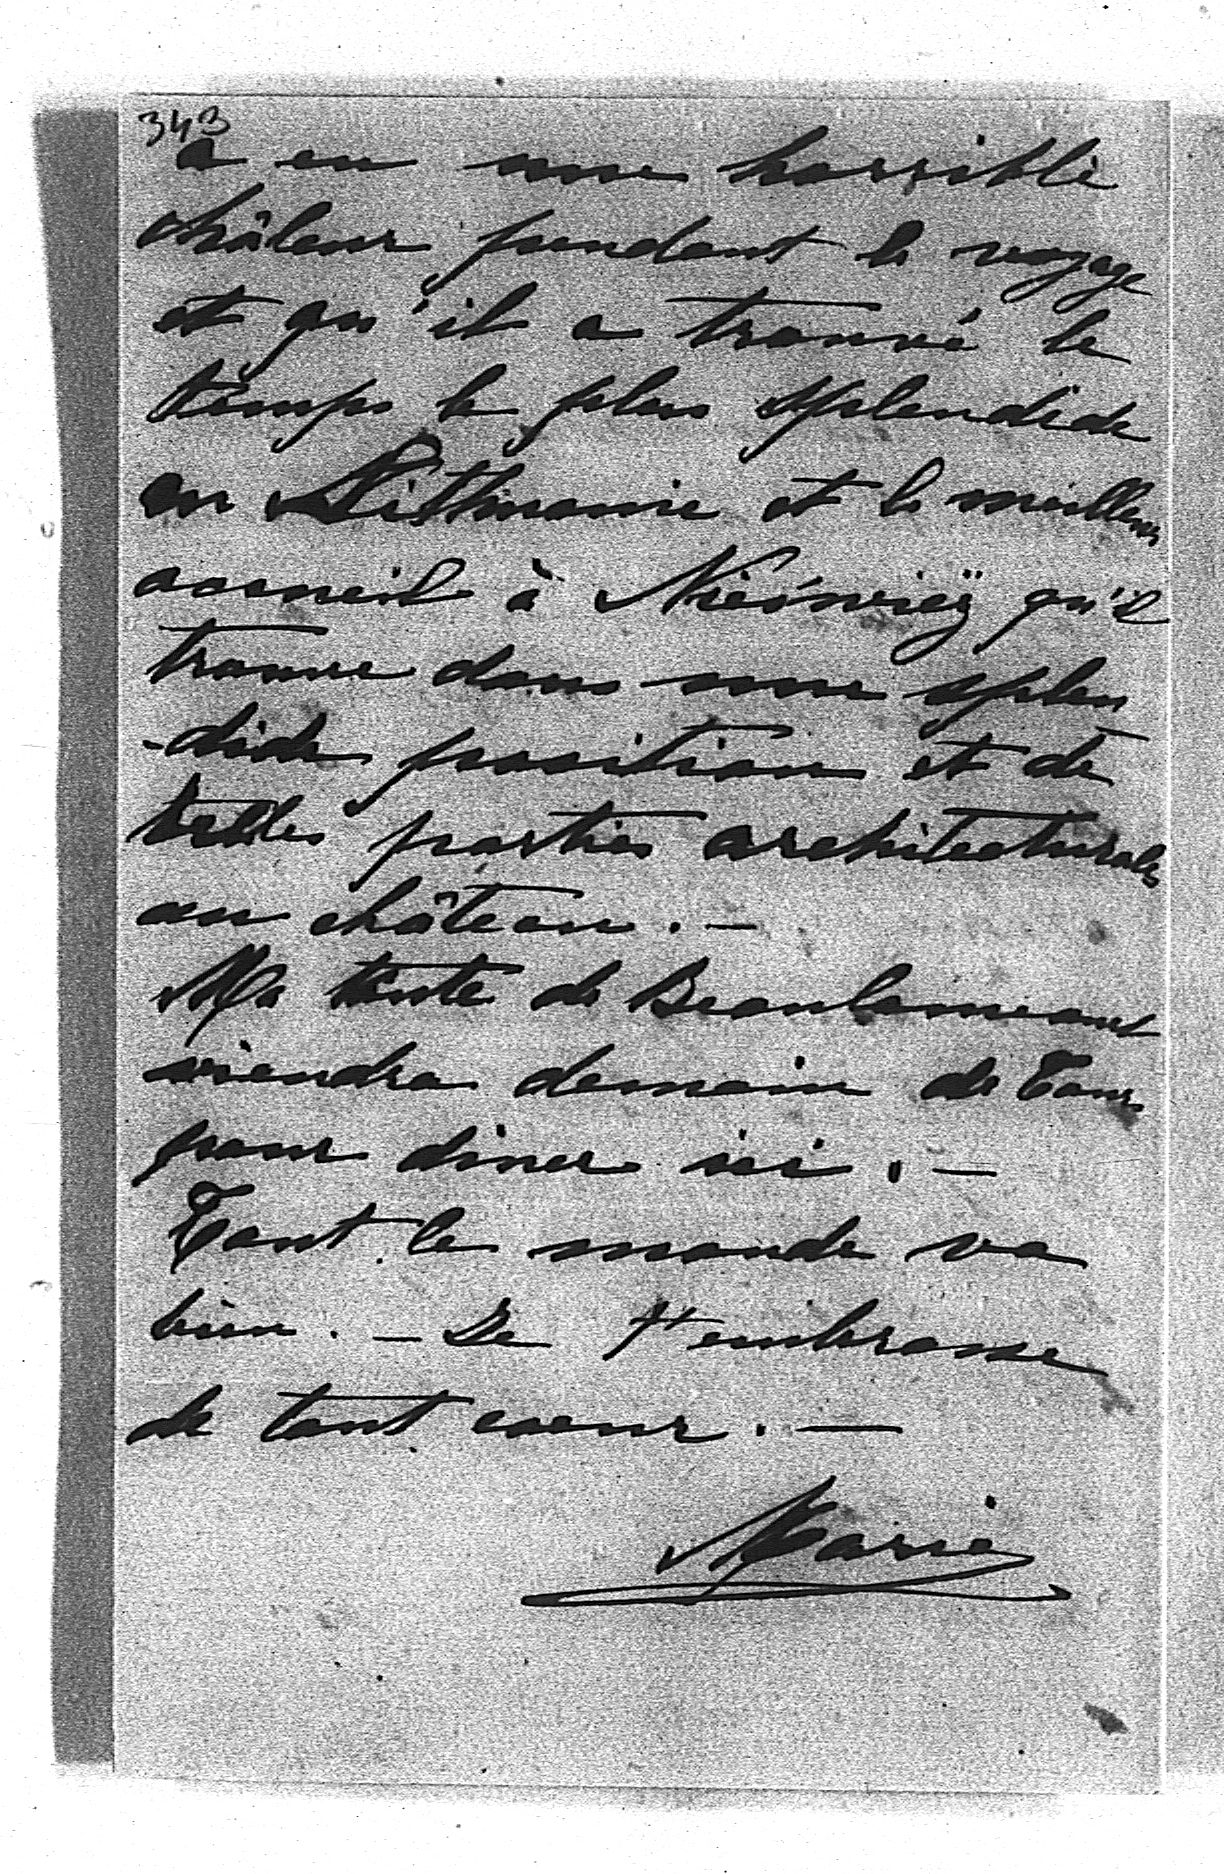 343
a eu une horrible
châleur pendant le voyage
et qu'il a trouvé le
temps le plus splendide
en Lithuanie et le meilleur
accueil à Nieswiez qu'il
trouve dans une splen
-dide position et de
belles parties architecturales
au château. —
Ma tante de Beaulaincourt
viendra demain de Tours
pour diner ici. —
Tout le monde va
bien. — Je t'embrasse
de tout coeur. —
Marie